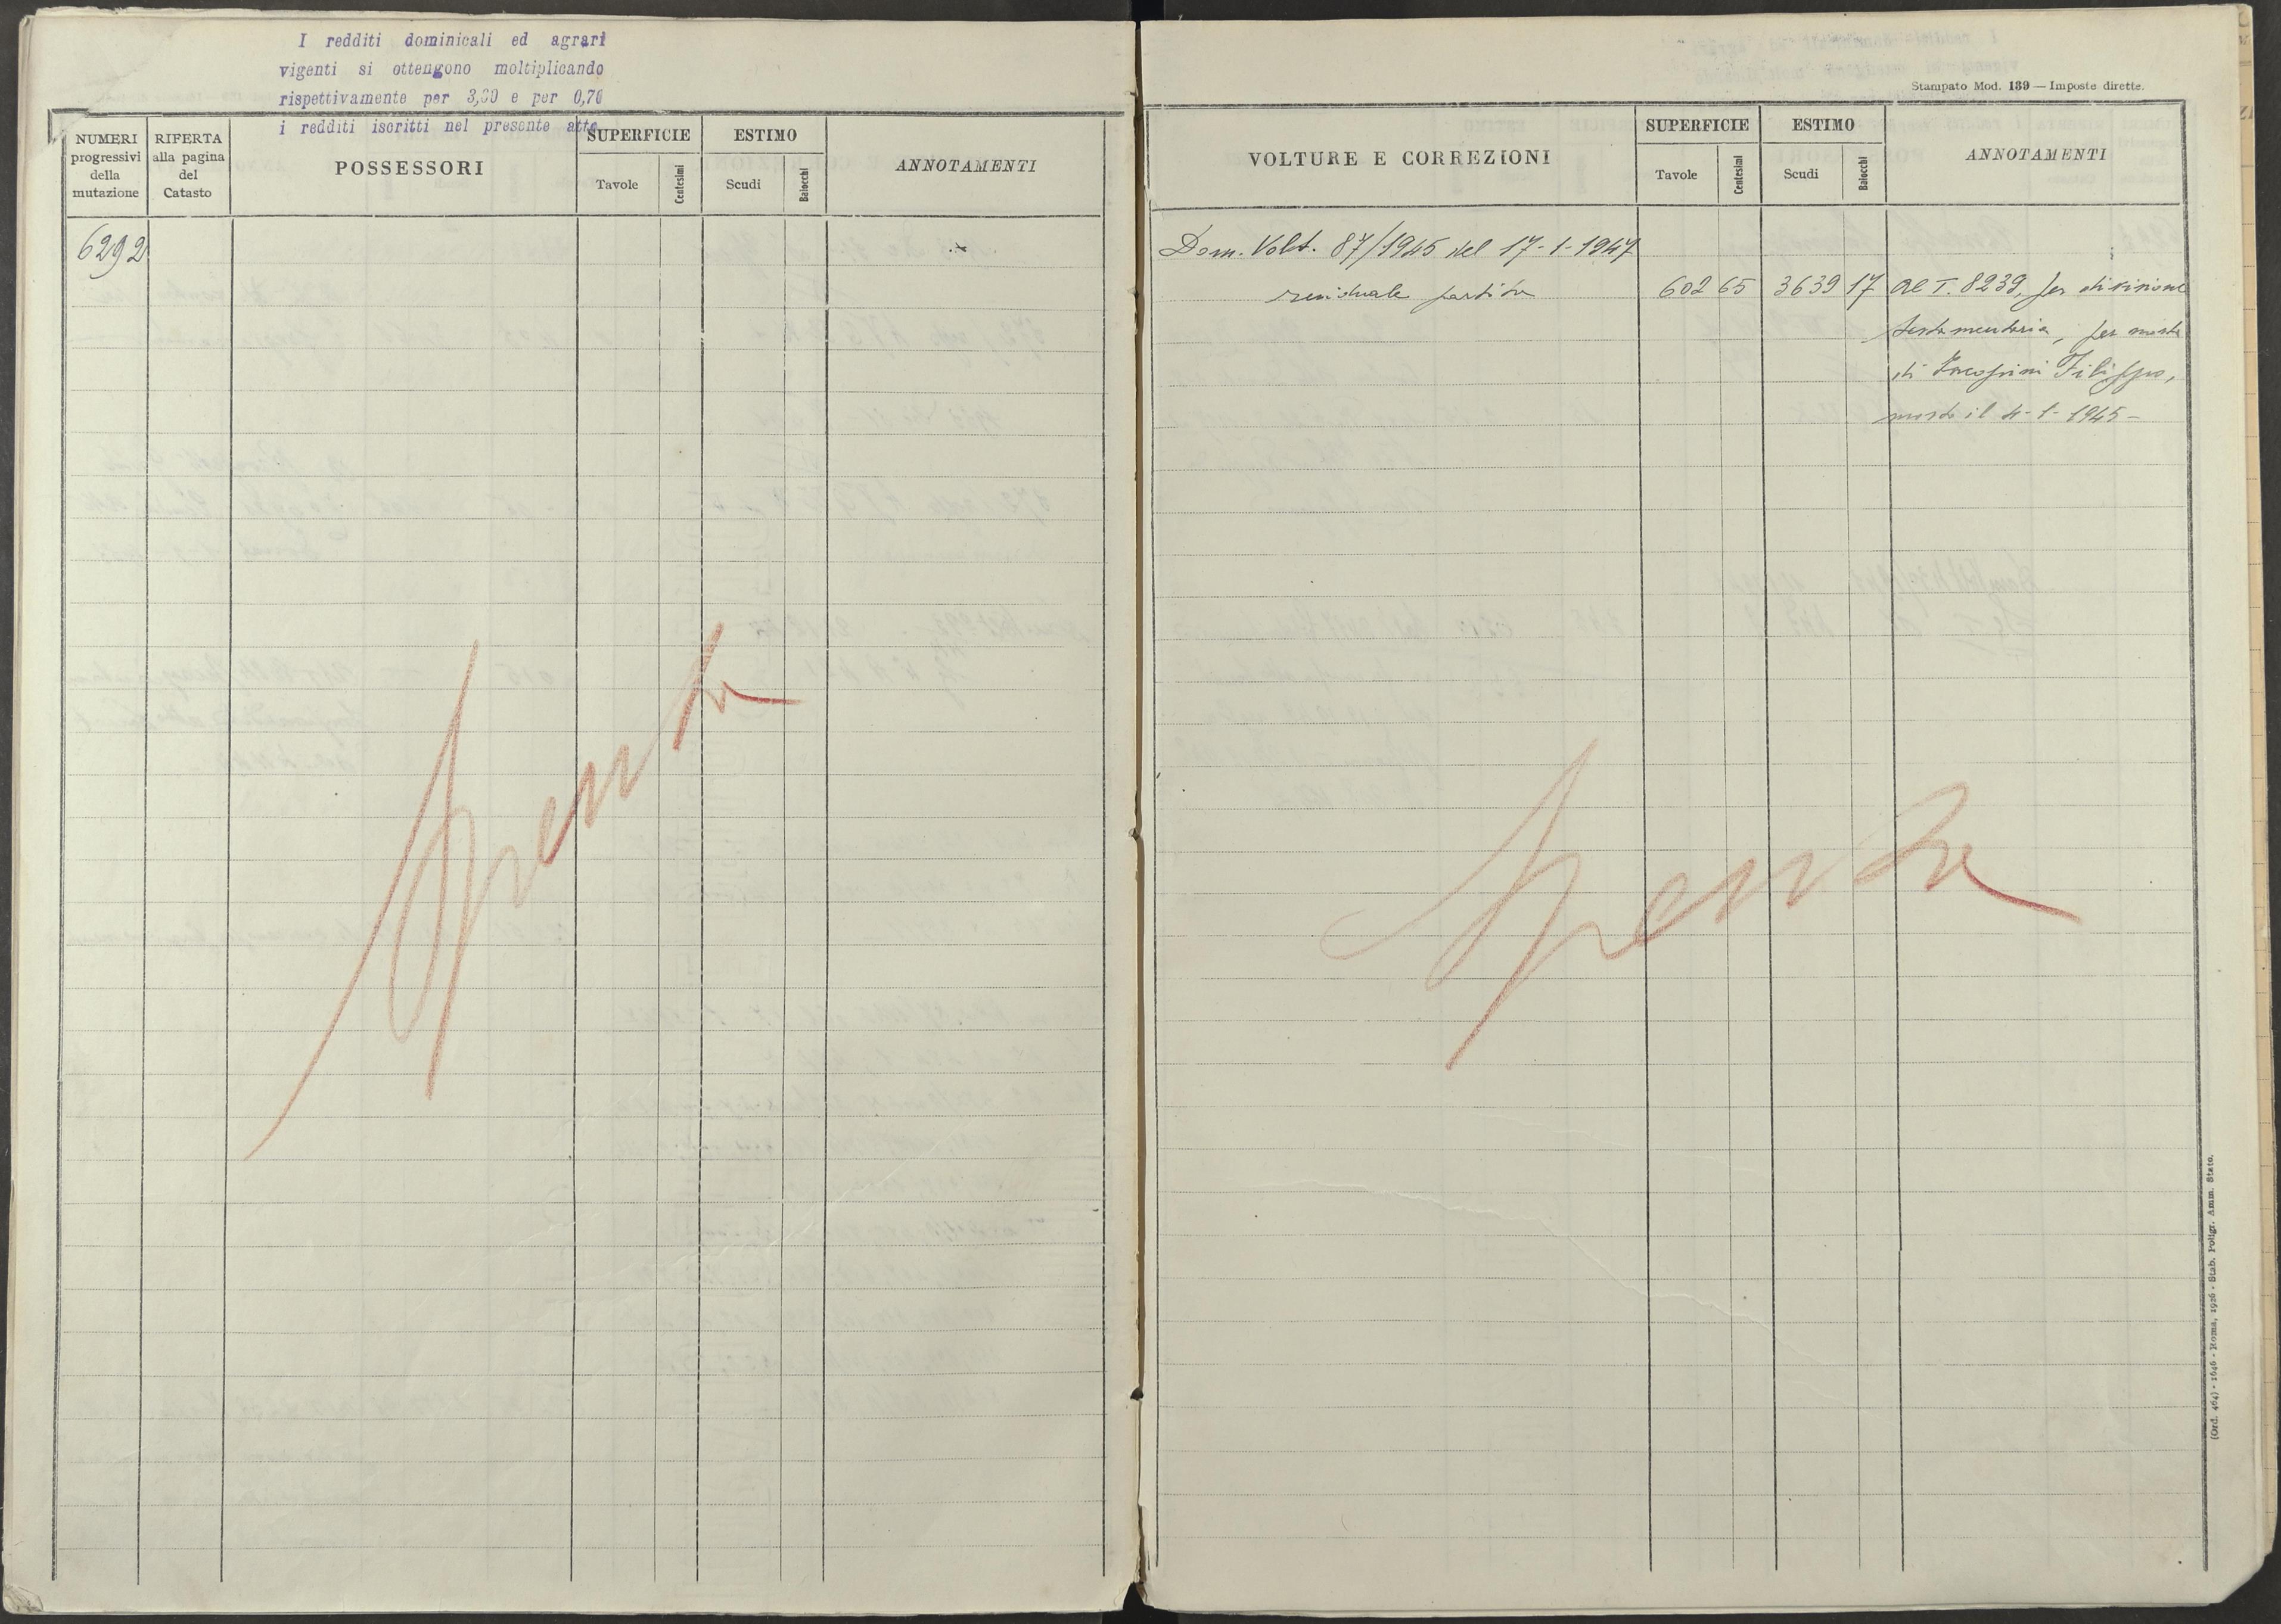 I redditi dominicali ed agrari
vigenti si ottengono moltiplicando
rispettivamente per 3,00 e per 0,70
i redditi iscritti nel presente atto
NUMERI
progressivi
della
mutazione
RIFERTA
alla pagina
del
Catasto
POSSESSORI
SUPERFICIE
Tavole
Centesimi
ESTIMO
Scudi
Baiocchi
ANNOTAMENTI
6292
Spenta
Stampato Mod. 139 — Imposte dirette.
VOLTURE E CORREZIONI
SUPERFICIE
Tavole
Centesimi
ESTIMO
Scudi
Baiocchi
ANNOTAMENTI
Dom. Volt. 87/1945 del 17-1-1947
residuale partita 602 65 3639 17 al T. 8239, per divisione
testamentaria, per morte
di Filippo,
morto il 4-1-1945-
Spenta
(Ord. 464) - 1646 - Roma, 1926 - Stab. Poligr. Amm. Stato.